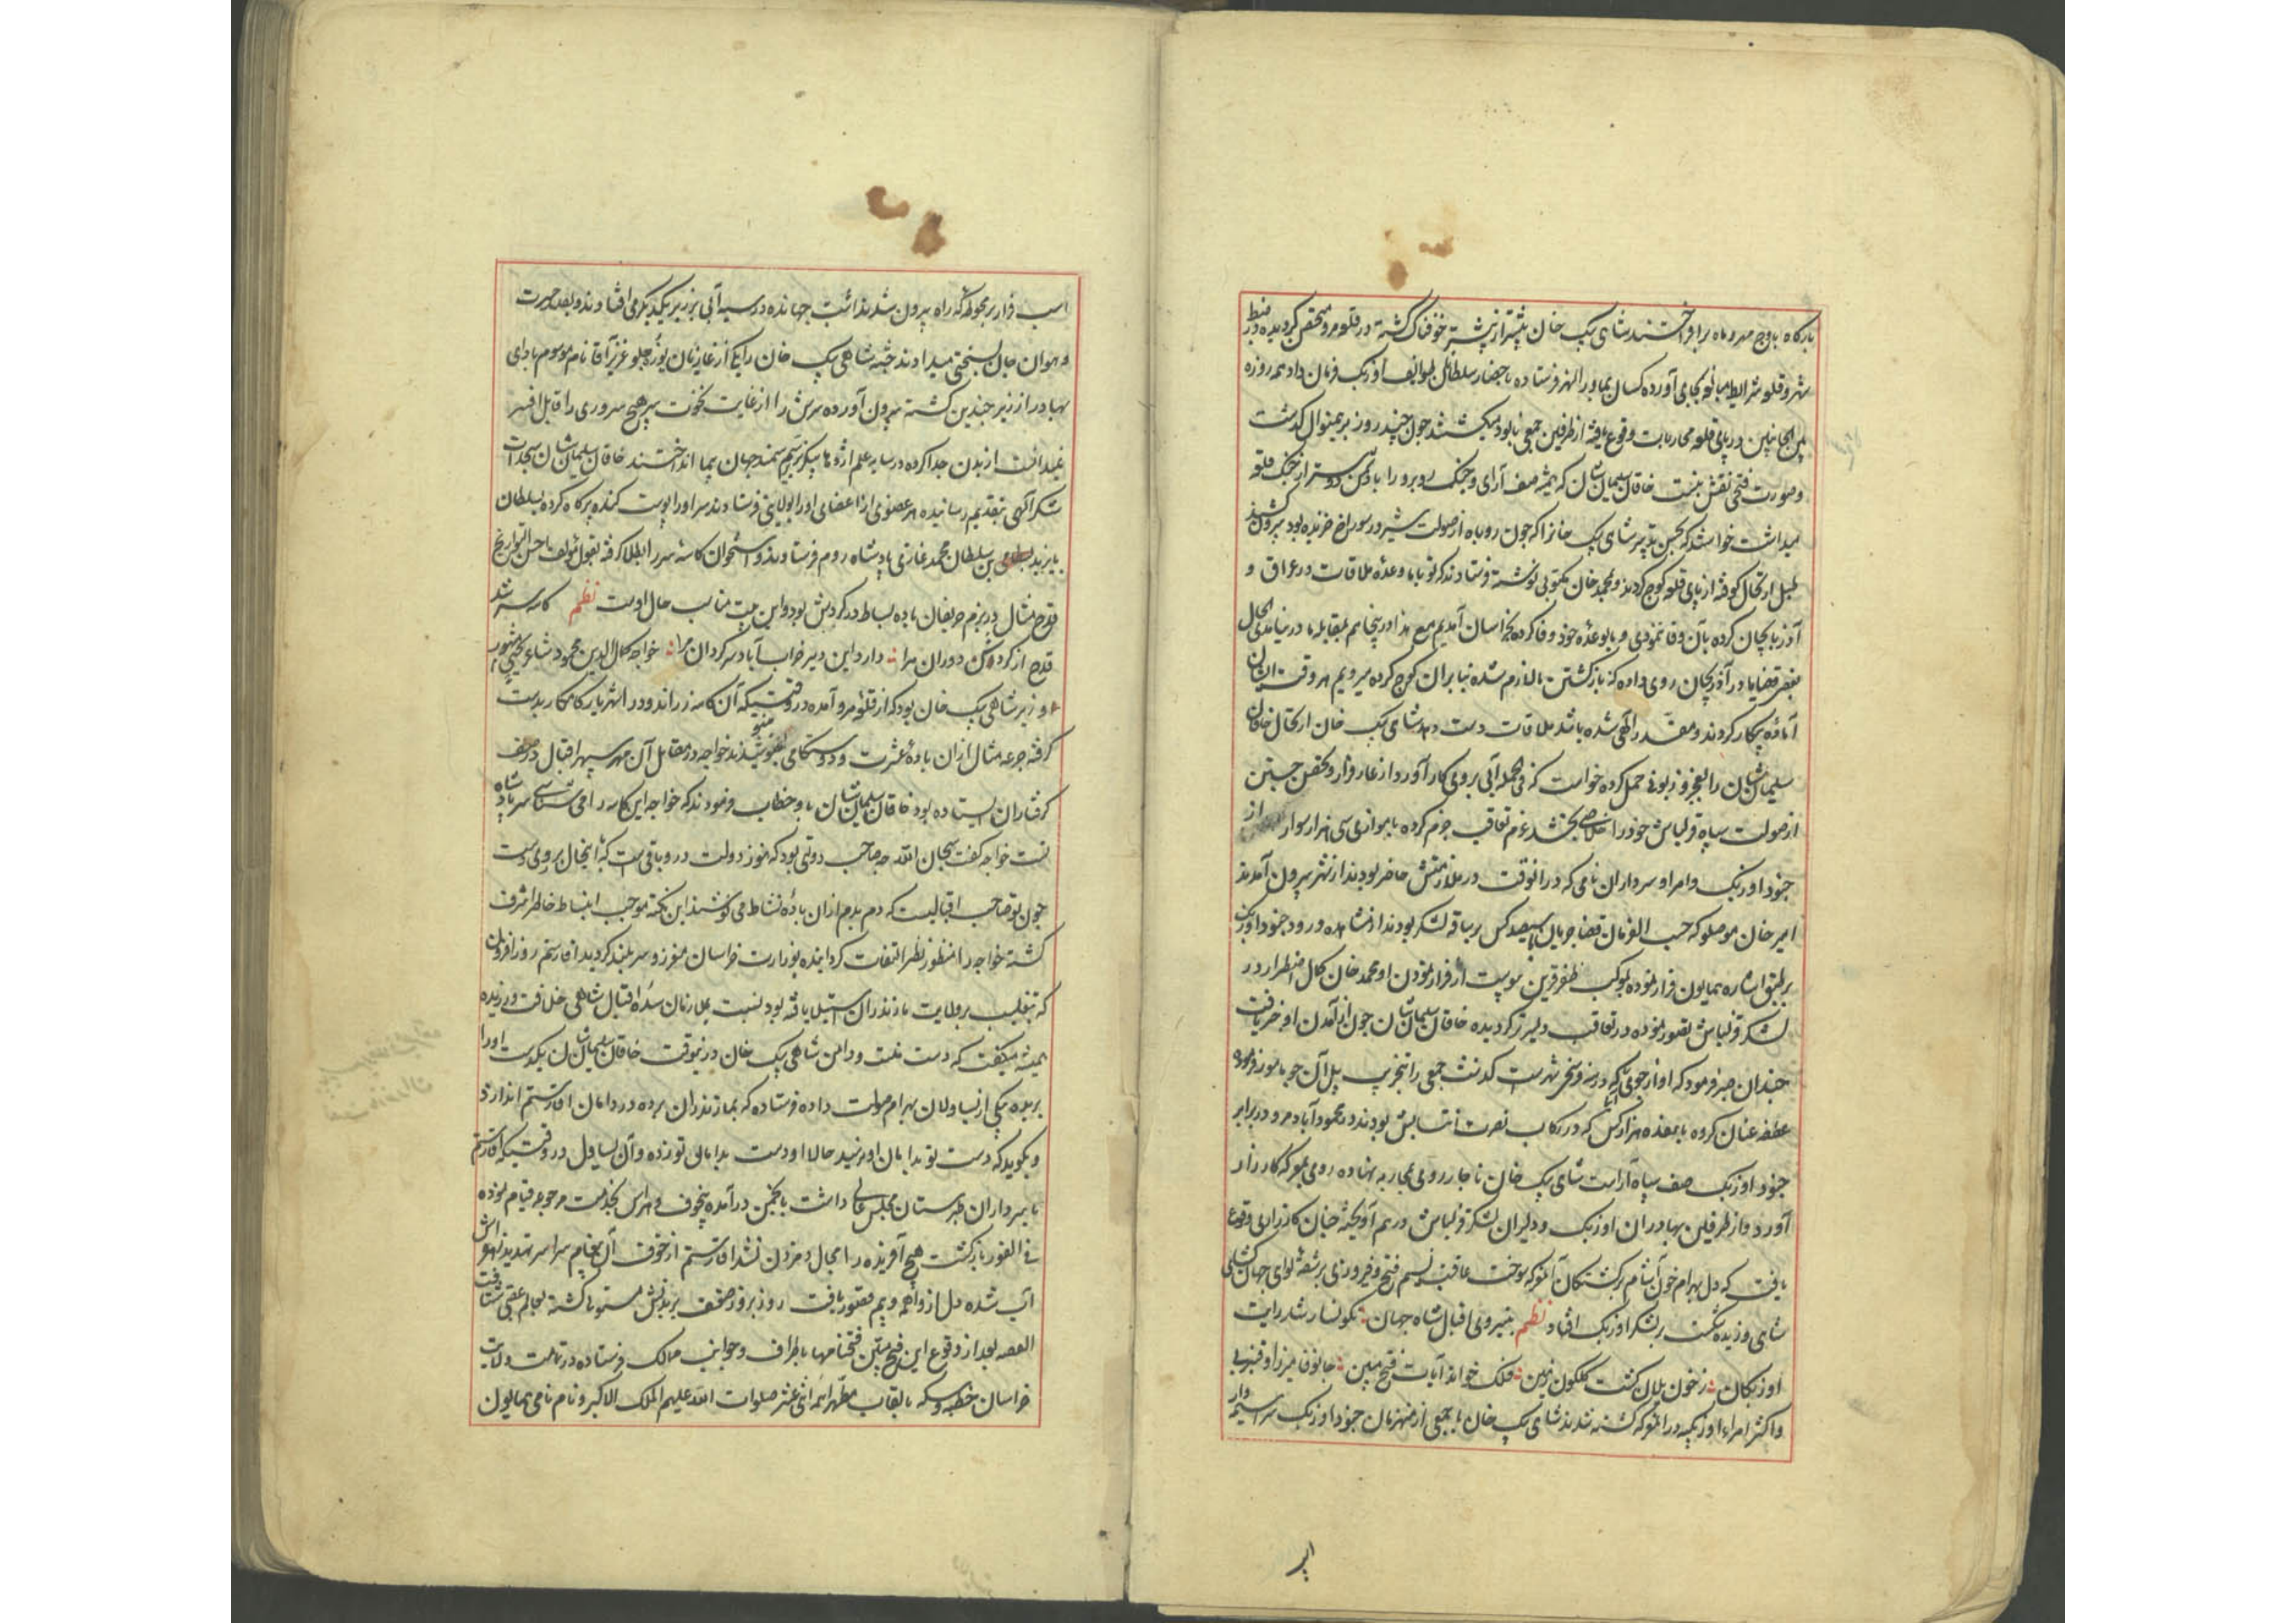 بارگاه باوج مهر و ماه برافراختند شاهی بیک خان بیشتر از پیشتر خوفناک گشته در قلعه مرو متحصن گردیده در ضبط
شهر و قلعه شرایط مبالغه بجای آورده کسان بماورالنهر فرستاده باحضار سلطانان طوایف اوزبک فرمان داد همه روزه
بین الجانبین در پای قلعه محاربات وقوع یافته از طرفین جمعی نابود میکشتند چون چند روز برینمنوال کذشت
و صورت فتحی نقش نبست خاقان سلیمان شان که همیشه صف آرای و جنک روبرو را با دشمن دوستر از جنک قلعه
میداشت خواستند که بحسن تدبیر شاهی بیک خانرا که چون روباه از صولت شیر در سوراخ خزیده بود بیرون کشند
طبل ارتحال کوفته از پای قلعه کوچ کردند و بمحمد خان مکتوبی نوشته فرستادند که تو با ما وعده ملاقات در عراق و
آذربایجان کرده بآن وفا ننمودی و ما بوعده خود وفا کرده بخراسان آمدیم مع هذا در پنجا هم بمقابله ما در نیامدی الحال
بعضی قضایا در آذربایجان روی داده که بازکشتن ما لازم شده بنابران کوچ کرده میرویم هر وقت ایشان
آماده پیکار کردند و مقدر الهی شده باشد ملاقات دست دهد شاهی بیک خان ارتحال خاقان
سلیمان شان را بعجز و زبونی حمل کرده خواست که فی الجمله آبی بروی کار آورد از عار فرار و تحصن جستن
از صولت سپاه قزلباش خود را خلاصی بخشد عزم تعاقب جزم کرده با موازی سی هزار سوار از
جنود اوزبک و امرا و سرداران نامی که درانوقت در ملازمتش حاضر بودند از شهر بیرون آمدند
امیر خان موصلو که حسب الفرمان قضا جریان با سیصد کس بر ساقه لشکر بودند از مشاهده ورود جنود اوزبک
بر طبق اشاره همایون فرار نموده بموکب ظفر قرین پیوست از فرار نمودن او محمد خان کمال اضطرار در
لشکر قزلباش تصور نموده در تعاقب دلیرتر کردیده خاقان سلیمان شان چون از آمدن او خبر یافت
چندان صبر فرمود که او از جوئی که در سه فرسخی شهر است کذشت جمعی را بتخریب پل آن جو مامور فرموده
عطف عنان کرده با هفده هزار کس که در رکاب نصرت انتسابش بودند در محمودآباد مرو در برابر
جنود اوزبک صف سپاه آراست شاهی بیک خان ناچار روی بمحاربه نهاده روی بمعرکه کارزار
آورد و از طرفین بهادران اوزبک و دلیران لشکر قزلباش در هم آویخته چنان کارزاری وقوع
یافت که دل بهرام خون آشام بر کشتکان آن معرکه سوخت عاقبت نسیم فتح و فیروزی بر شقه لوای جهان کشای
شاهی وزیده شکست بر لشکر اوزبک افتاد نظم بنیروی اقبال شاه جهان نکونسار شد رایت
اوزبکان ز خون یلان کشت کلکون زمین فلک خواند آیات فتح مبین جانوفا میرزا و قنبر بی
و اکثر امراء اوزبکیه در المعرکه کشته شدند شاهی بیک خان با جمعی از منهزمان جنود اوزبک سراسیمه وار
اسب فرار بر محوطه که راه بیرون شد نداشت جهانده در سیه آبی بر زبر یکدیکر می افتادند و بصد حسرت
و هوان جان بسختی میدادند جثه شاهی بیک خان را یکی از غازیان بورد جلو عزیز آقا نام موسوم بادای
بهادر از زیر چندین کشته بیرون آورده سرش را از غایت نخوت بر هیچ سروری را قابل افسر
نمیدانست از بدن جدا کرده در سایه علم اژدها پیکر بر سم سمند جهان پیما انداختند خاقان سلیمان شان سجدات
شکر الهی بتقدیم رسانیده هر عضوی از اعضای او را بولایتی فرستادند سر او را پوست کنده پر کاه کرده بسلطان
بایزید بن سلطان محمد غازی پادشاه روم فرستادند و استخوان کاسه سر را بطلا کرفته بقول مؤلف احسن التواریخ
قدح مثال در بزم حریفان باده بساط در کردش بود و این بیت مناسب حال اوست نظم کاسه سر شد
قدح از کردش دوران مرا دارد این دیر خراب آباد سرکردان مرا خواجه کمال الدین محمود ساغرجی مشهور
وزیر شاهی بیک خان بود که از قلعه مرو آمده در وقتیکه آن کاسه زراندود را شهریار کامکار بدست
کرفته جرعه مثال ازان باده عشرت و دوستکامی می نوشیدند خواجه در مقابل آن مهر سپهر اقبال در صف
کرفتاران ایستاده بود خاقان سلیمان شان باو خطاب فرمودند که خواجه این کاسه را می شناسی سر پادشاه
تست خواجه کفت سبحان الله چه صاحب دولتی بود که هنوز دولت در و باقی است که با اینحال بر روی دست
چون تو صاحب اقبالیست که دم بدم ازان باده نشاط می نوشند این نکته موجب انبساط خاطر اشرف
کشته خواجه را منظور نظر التفات کردانیده بوزارت خراسان مفرز و سربلند کردید آقا رستم روز افزون
که بتغلب بر ولایت مازندران استیلا یافته بود نسبت بملازمان سده اقبال شاهی خلافت ورزیده
همیشه میکفت که دست منست و دامن شاهی بیک خان درینوقت خاقان سلیمان شان یکدست او را
بریده بیکی از یساولان بهرام صولت داده فرستاده که بمازندران برده در دامان آقا رستم اندازد
و بکوید که دست تو بدامان او نرسید حالا او دست بدامان تو زده و آن یساول در وقتیکه آقا رستم
با سرداران طبرستان مجلس عالی داشت بانجمن درآمده بیخوف و هراس بخدمت مرجوعه قیام نموده
فی الفور بازکشت هیچ آفریده را مجال دم زدن نشد آقا رستم از خوف آن پیغام سراسر تهدید زهره اش
آب شده دل از واهمه و بیم فتور یافت روز بروز ضعف بر بدنش مستولی کشته بعالم عقبی شتافت
القصه بعد از وقوع این فتح مبین فتحنامها باطراف و جوانب ممالک فرستاده در تمامت ولایت
خراسان خطبه و سکه بالقاب مطهر ائمه اثنی عشر صلوات الله علیهم الملک الاکبر و نام نامی همایون